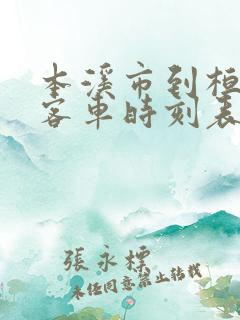 本溪市到桓
客車時刻表
張永標
未经同意禁止转载